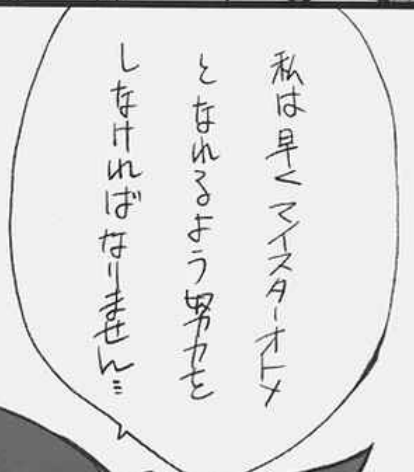 私は早くマイスターオトメ
となれるよう努力を
しなければなりません…